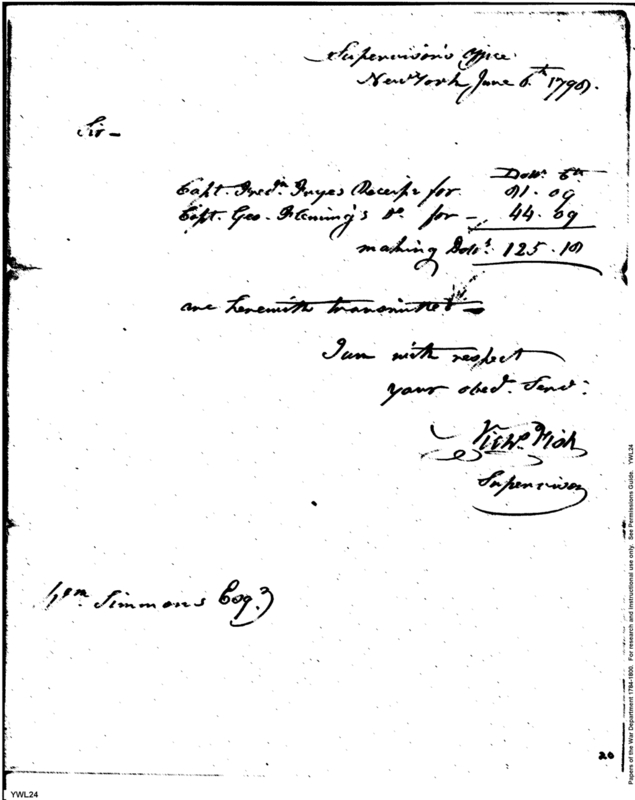 Supervisor's Office
New York June 6.th 1798.
Sir –
Doll.s Cts
Capt. Fred.k Fryes Receipt for 81.09
Capt. Geo. Fleming's Do. for – 44.09
making Doll.s 125.18
are herewith transmitted –
I am with respect
your obed.t Serv.t
Nich.s Fish
Supervisor
Wm Simmons Esq.r
20
YWL24
Papers of the War Department 1784-1800. For research and instructional use only. See Permissions Guide. YWL24